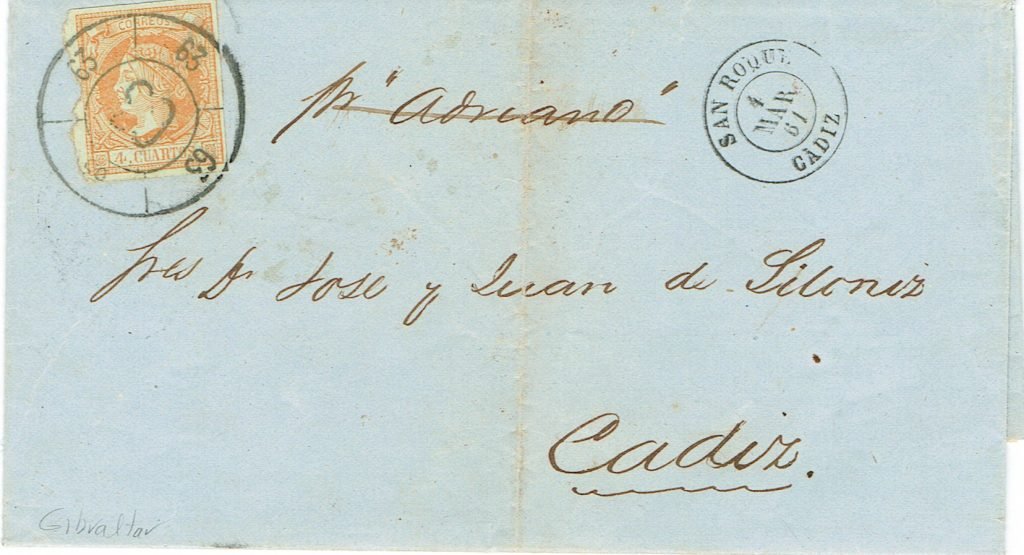 CORREOS
4 CUART
63 63 63 63
pr "Adriano"
SAN ROQUE
1
MAR
61
CÁDIZ
Sres Dn Jose y Juan de Siloniz
Cadiz.
Gibraltar